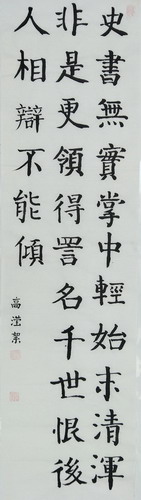 史書無實掌中輕始末清渾
非是更領得詈名千世恨後
人相辯不能傾
高瀅絜